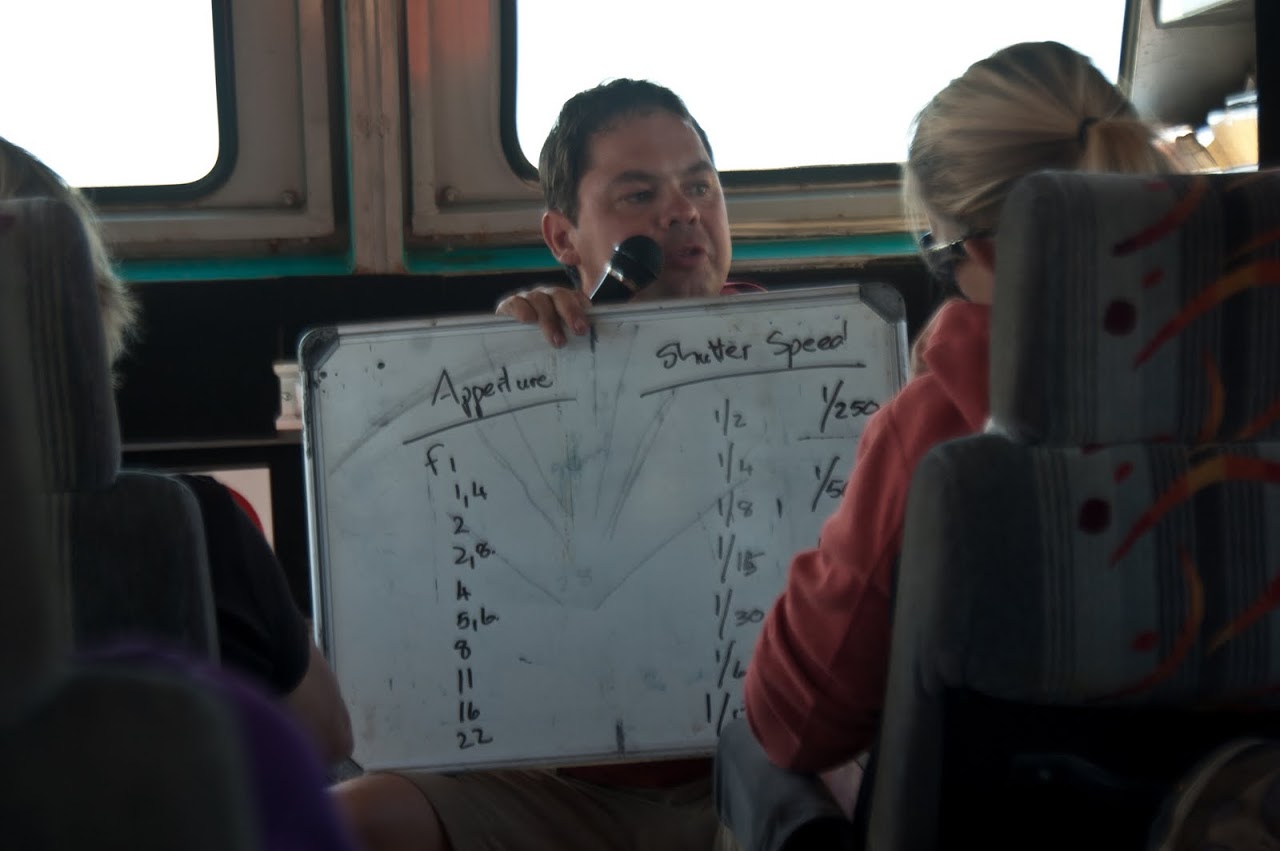 Apperture
f 1
1,4
2
2,8
4
5,6
8
11
16
22
Shutter Speed
1/2
1/4
1/8
1/15
1/30
1/250